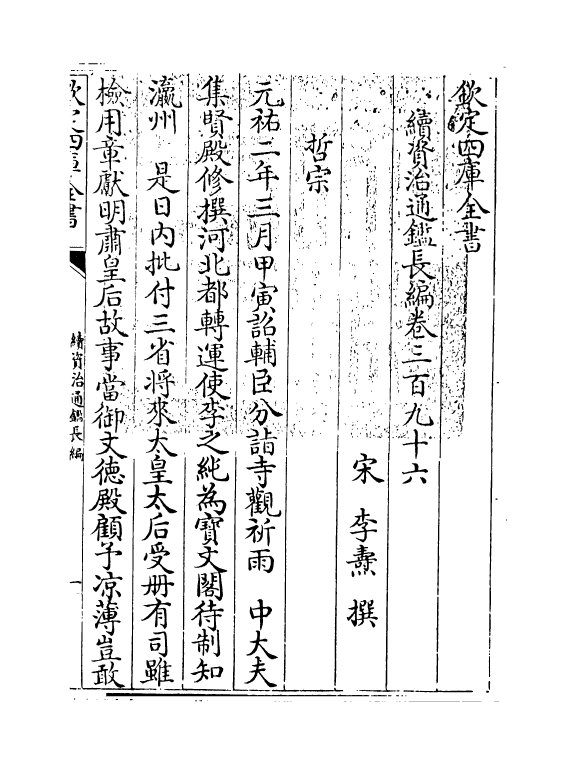 欽定四庫全書
續資治通鑑長編卷三百九十六
宋 李燾 撰
哲宗
元祐二年三月甲寅詔輔臣分詣寺觀祈雨 中大夫
集賢殿修撰河北都轉運使李之純為寶文閣待制知
瀛州 是日內批付三省將來太皇太后受冊有司雖
檢用章獻明肅皇后故事當御文德殿顧予涼薄豈敢
欽定四庫全書
續資治通鑑長編
一